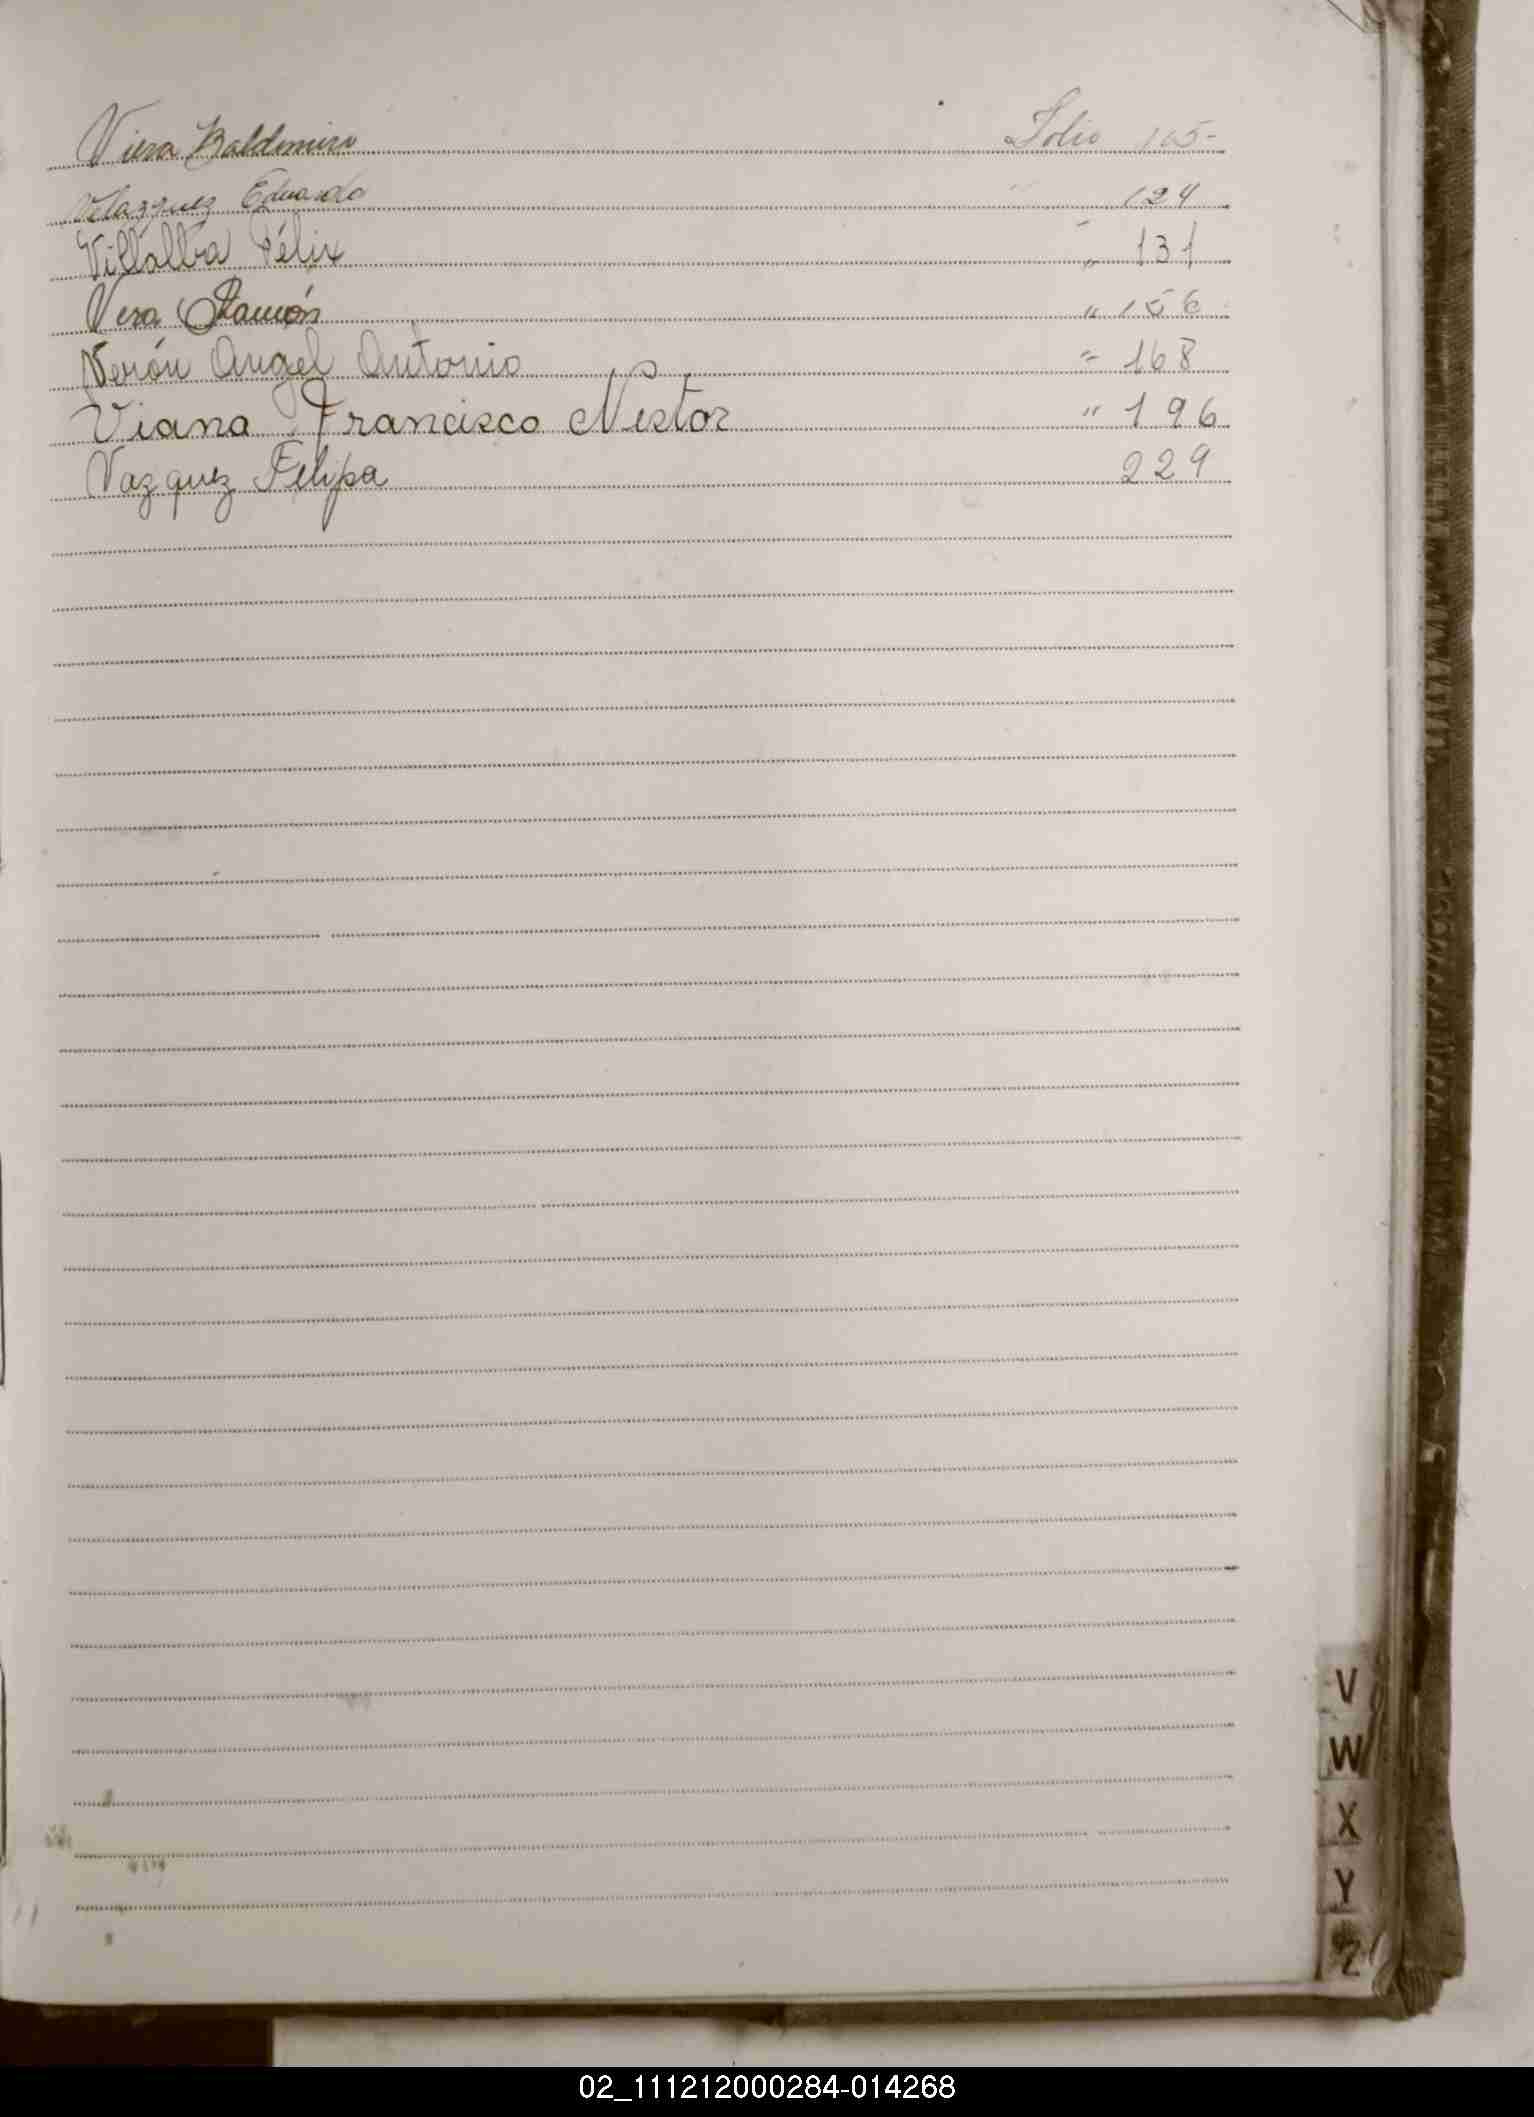 Viera Baldomiro Folio 105-
Velazquez Eduardo " 124
Villalba Félix " 131
Vera Ramón " 156
Verón Angel Antonio " 168
Viana Francisco Nestor " 196
Vazquez Felipa 229
V
W
X
Y
Z
02_111212000284-014268